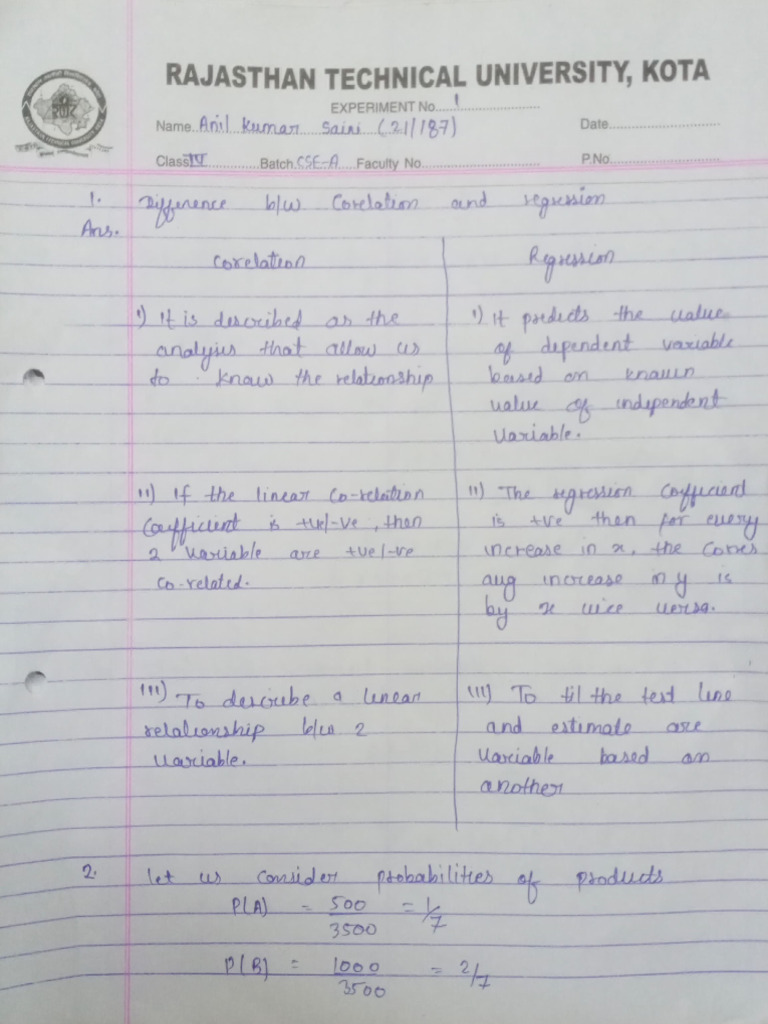 RAJASTHAN TECHNICAL UNIVERSITY, KOTA
EXPERIMENT No. 1
Name. Anil Kumar Saini (21/187) Date
Class IV Batch CSE-A Faculty No. P.No.
1. Difference b/w Corelation and regression
Ans.
Corelation
i) It is described as the
analysis that allow us
to know the relationship
ii) If the linear Co-relation
Coefficient is +ve/-ve, then
2 Variable are +ve/-ve
Co-related.
iii) To describe a linear
relationship b/w 2
Variable.
Regression
i) It predicts the value
of dependent variable
based on known
value of independent
Variable.
ii) The regression Coefficient
is +ve then for every
increase in x, the Corres
avg increase in y is
by x vice versa.
iii) To til the test line
and estimate are
Variable based on
another
2. let us consider probabilities of products
P(A) = 500/3500 = 1/7
P(B) = 1000/3500 = 2/7